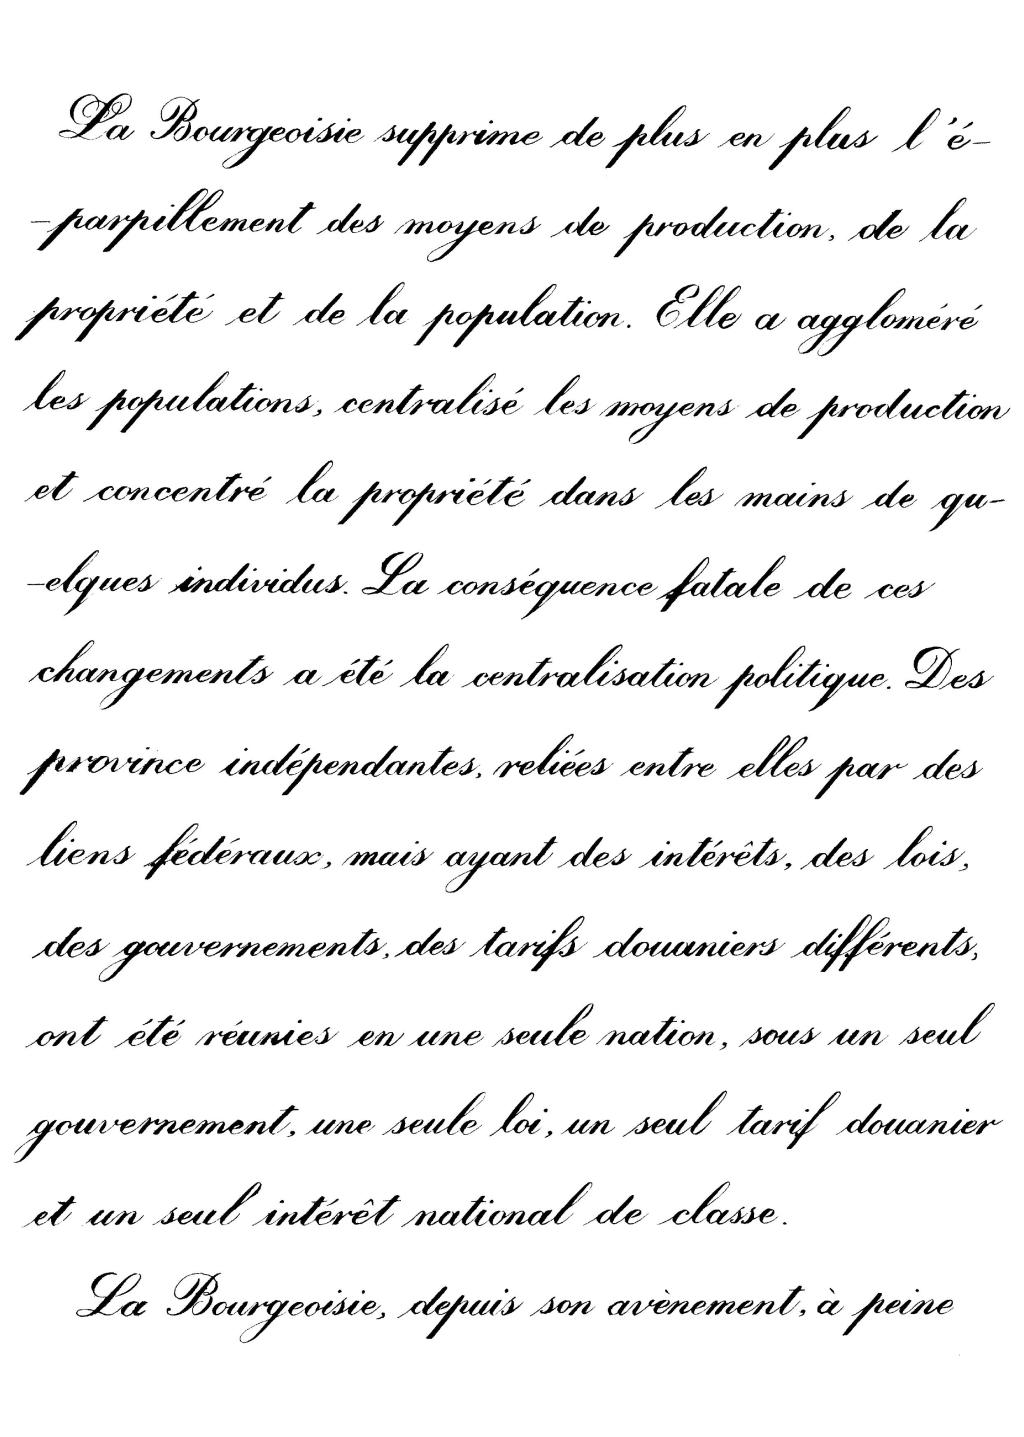 La Bourgeoisie supprime de plus en plus l'é-
-parpillement des moyens de production, de la
propriété et de la population. Elle a aggloméré
les populations, centralisé les moyens de production
et concentré la propriété dans les mains de qu-
-elques individus. La conséquence fatale de ces
changements a été la centralisation politique. Des
province indépendantes, reliées entre elles par des
liens fédéraux, mais ayant des intérêts, des lois,
des gouvernements, des tarifs douaniers différents,
ont été réunies en une seule nation, sous un seul
gouvernement, une seule loi, un seul tarif douanier
et un seul intérêt national de classe.
La Bourgeoisie, depuis son avènement, à peine